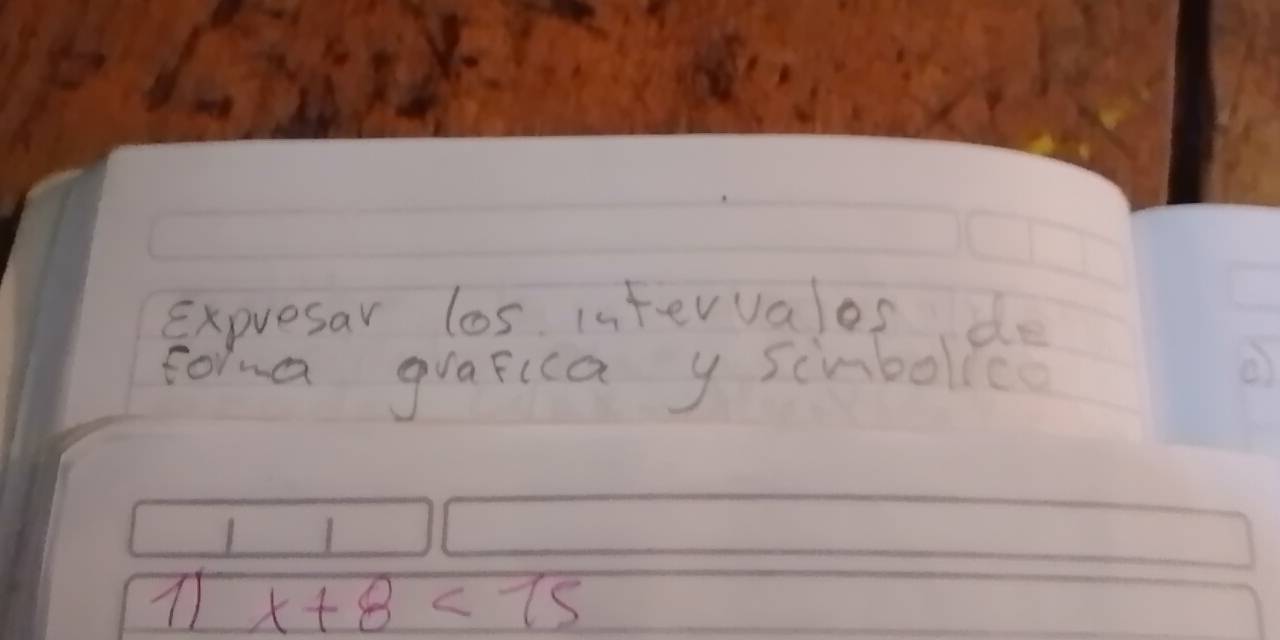 Expresar los intervalos de
forma grafica y simbolica
1) x + 8 < 15